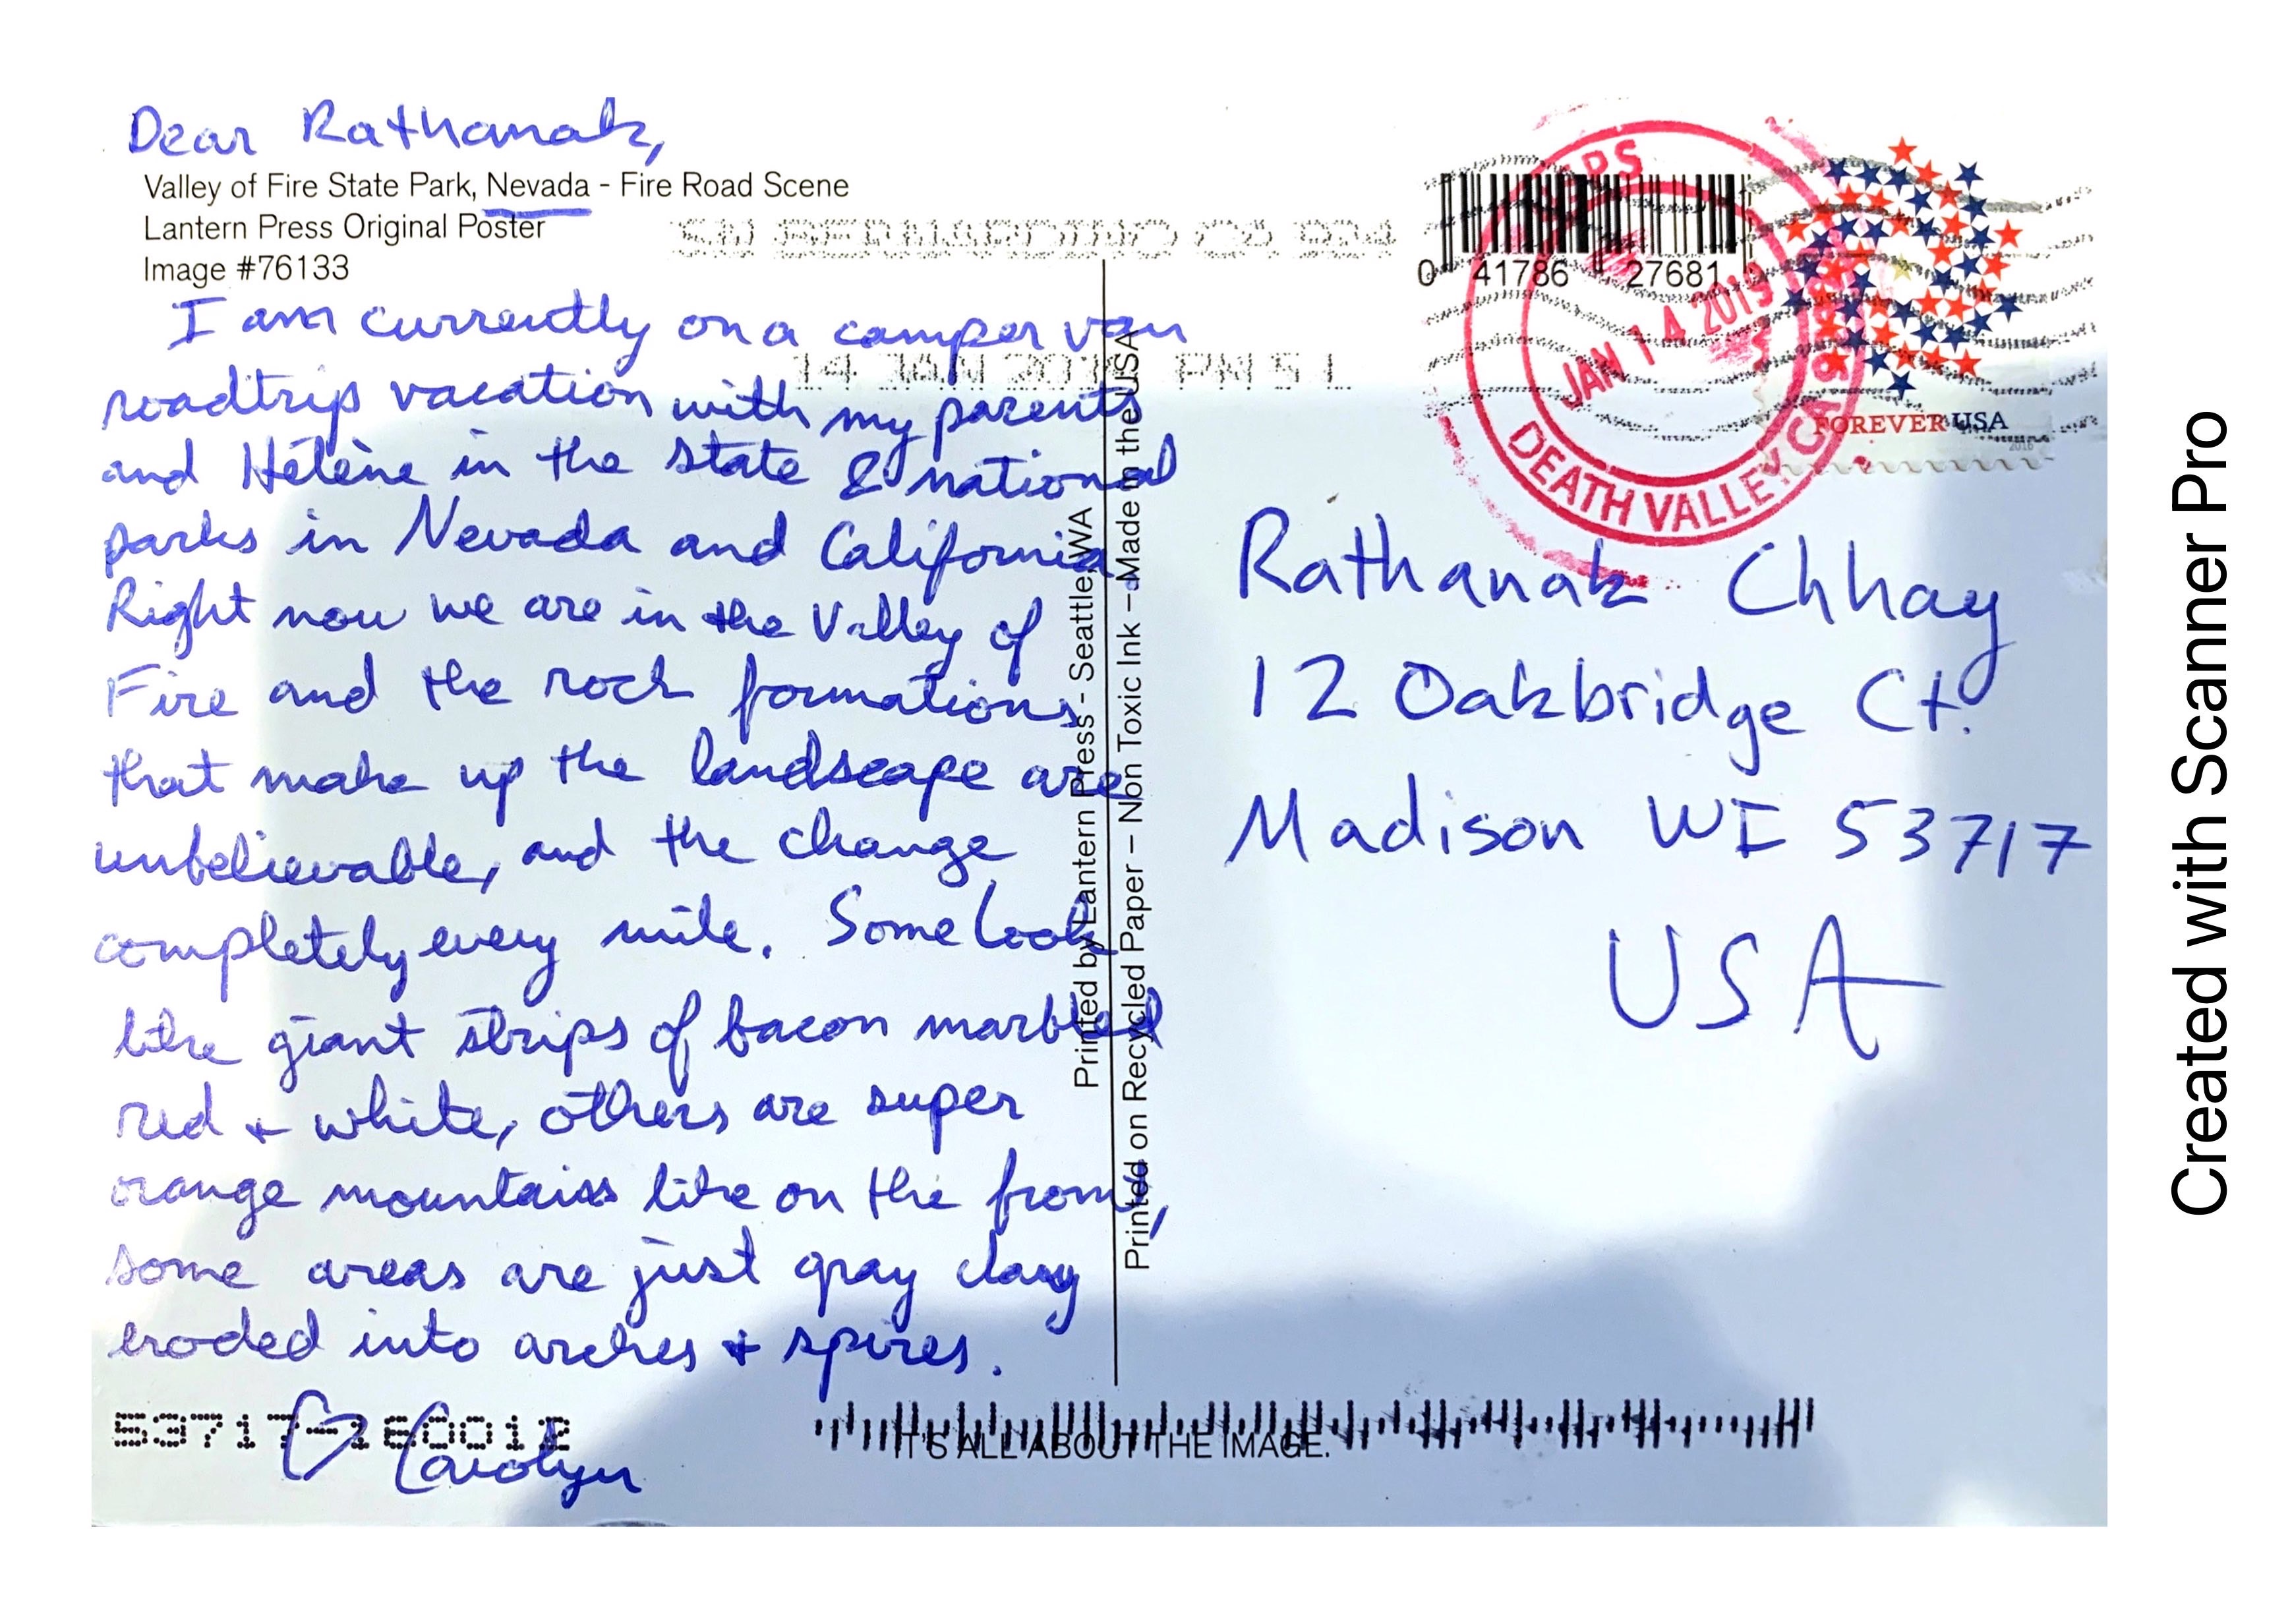 Dear Rathanak,
Valley of Fire State Park, Nevada - Fire Road Scene
Lantern Press Original Poster
Image #76133
I am currently on a camper van
roadtrip vacation with my parents
and Hélène in the state & national
parks in Nevada and California
Right now we are in the Valley of
Fire and the rock formations
that make up the landscape are
unbelievable, and the change
completely every mile. Some look
like giant strips of bacon marbled
red + white, others are super
orange mountains like on the front,
some areas are just gray clay
eroded into arches + spires.
♡ Carolyn
53717-160012
SN BERNARDINO CA 924
14 JAN 2019 PM 5 L
Printed by Lantern Press - Seattle, WA
Printed on Recycled Paper – Non Toxic Ink – Made in the USA
0 41786 27681
USPS
JAN 14 2019
DEATH VALLEY CA
FOREVER USA
2016
Rathanak Chhay
12 Oakbridge Ct.
Madison WI 53717
USA
IT'S ALL ABOUT THE IMAGE.
Created with Scanner Pro